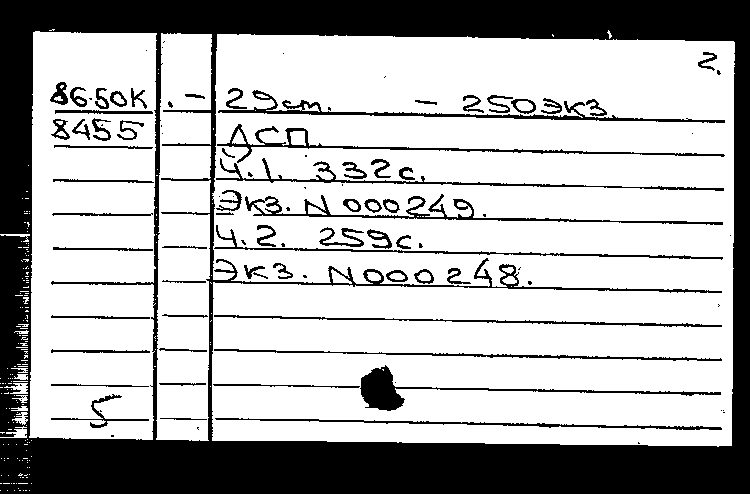 2.
86.50К . - 29 ст. - 250 экз.
8455 ДСП.
Ч.1. 332 с.
Экз. N 000249.
Ч.2. 259 с.
Экз. N 000248.
5